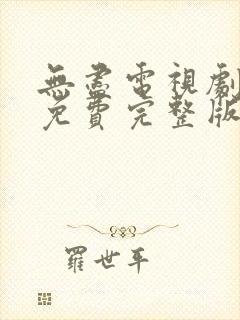 無盡電視劇
免費完整版
羅世平